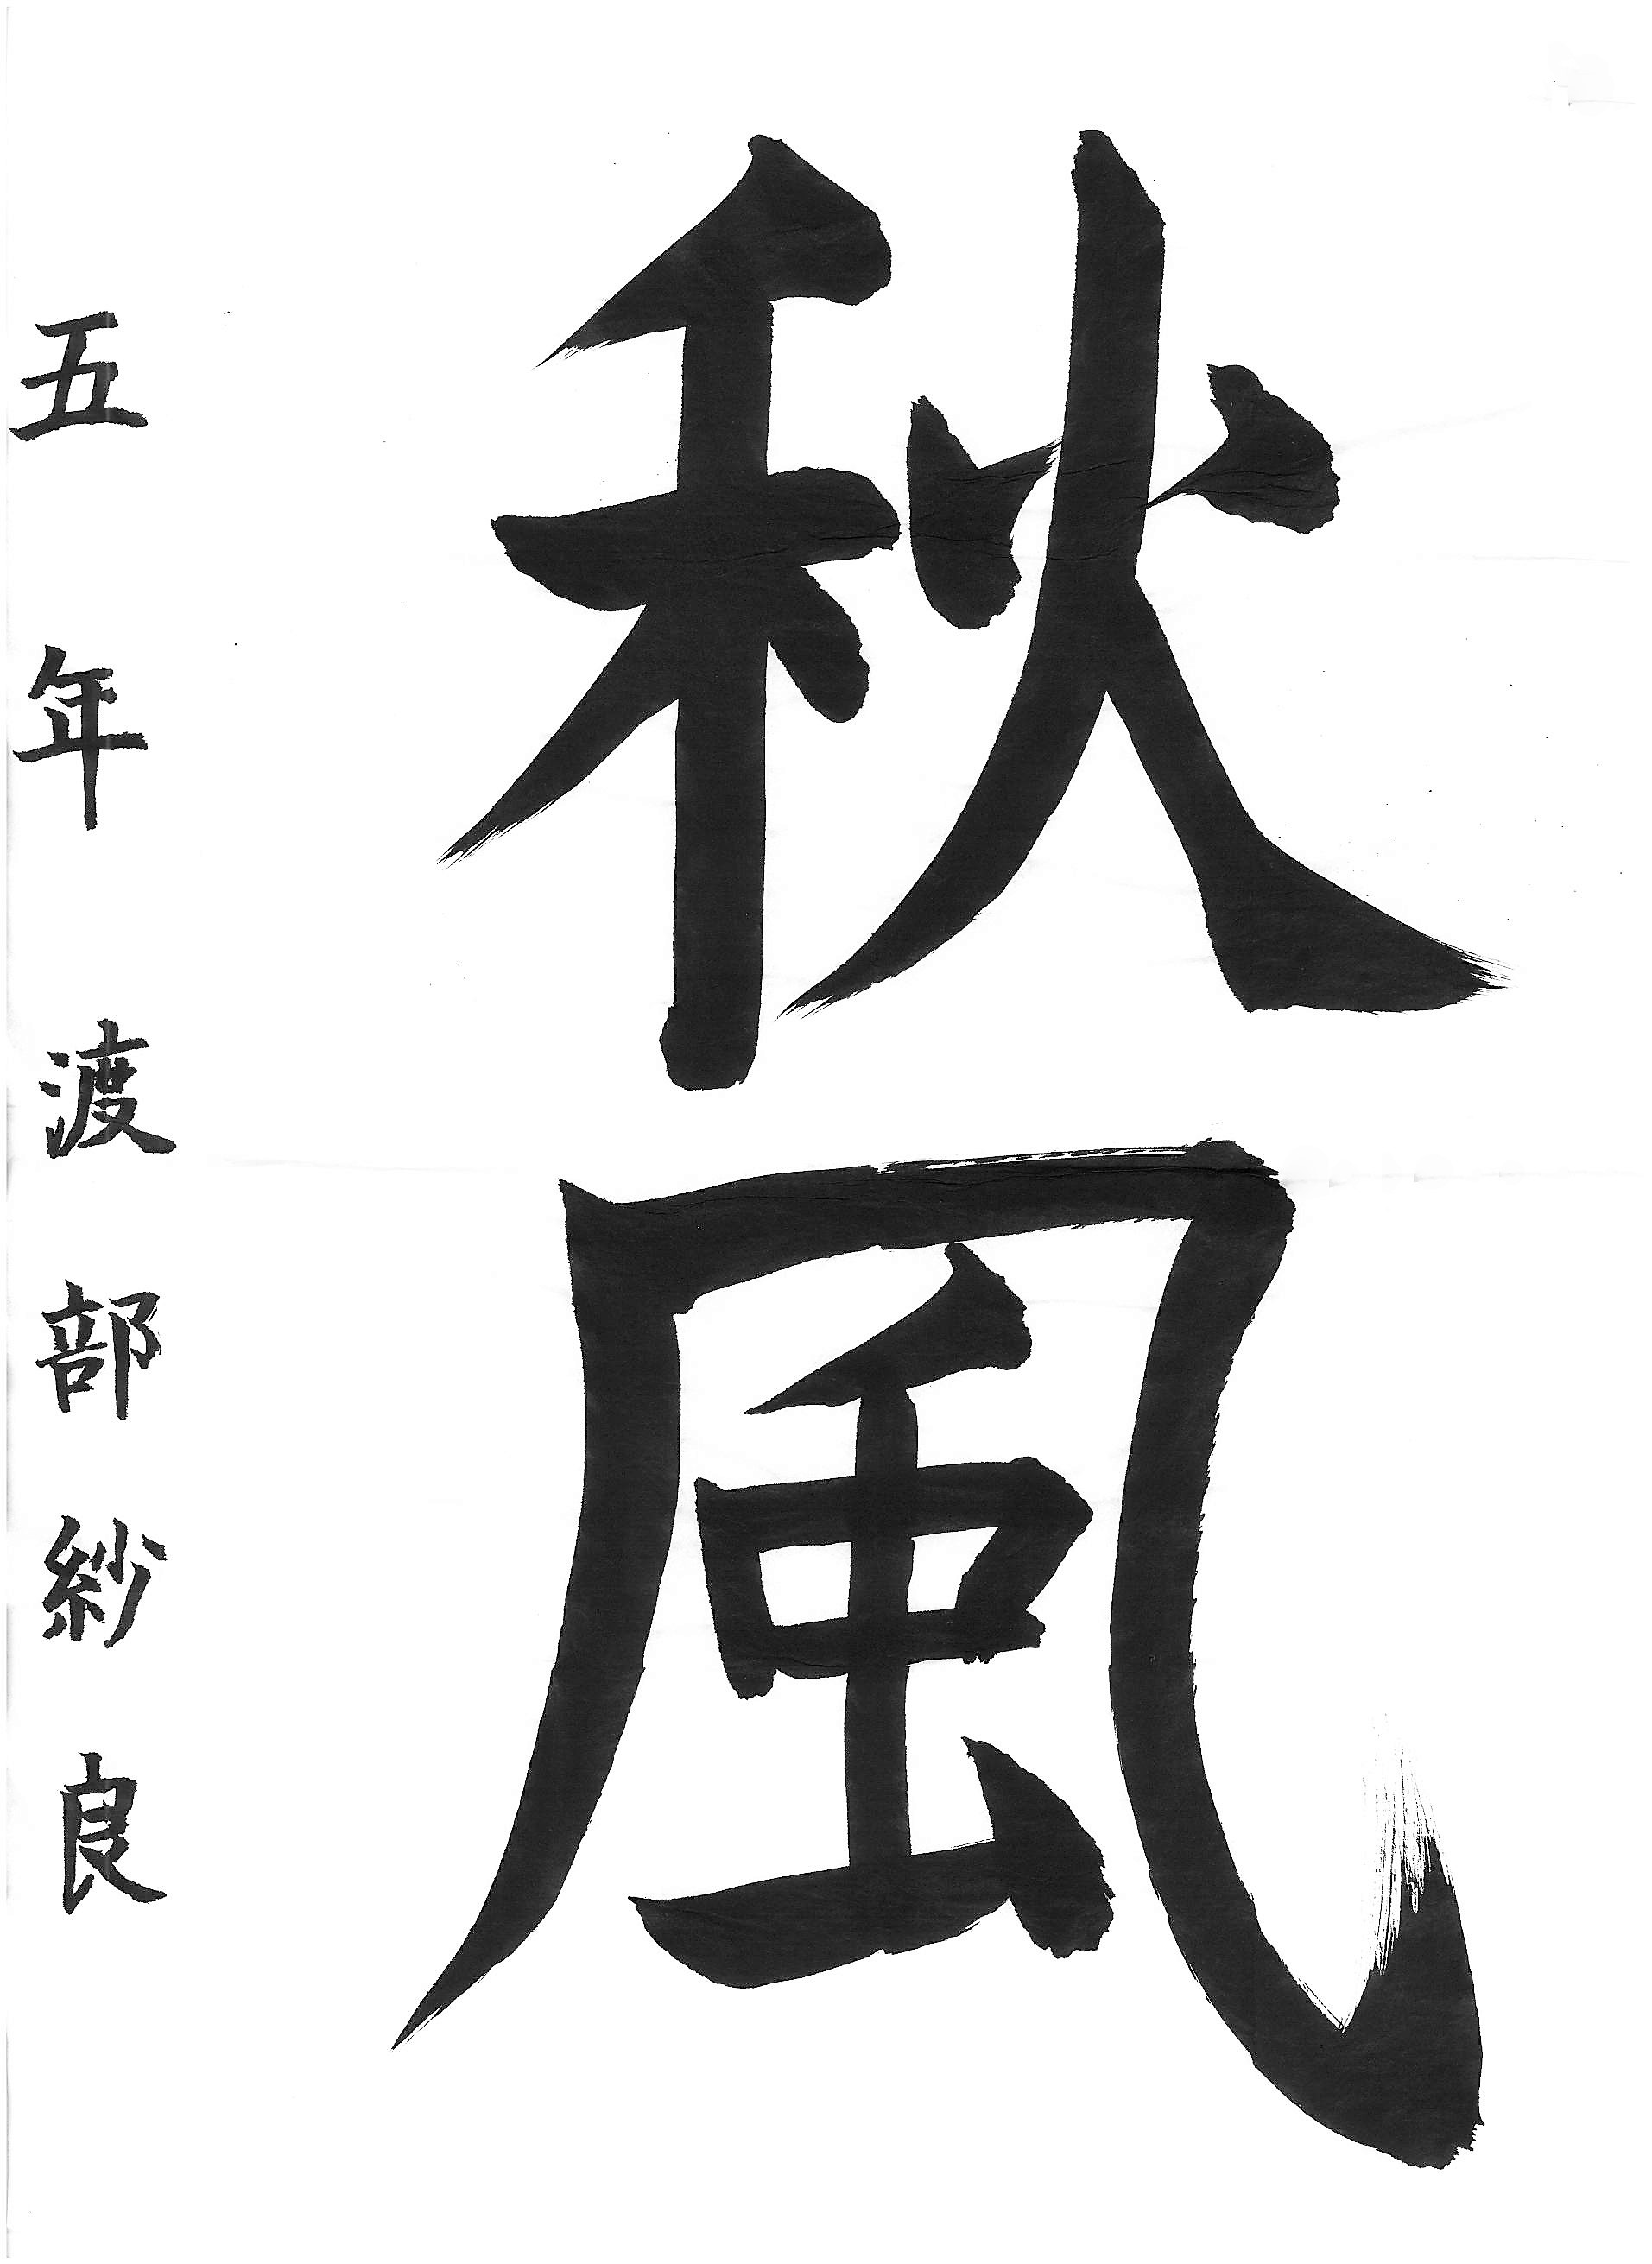 秋風
五年 渡部紗良